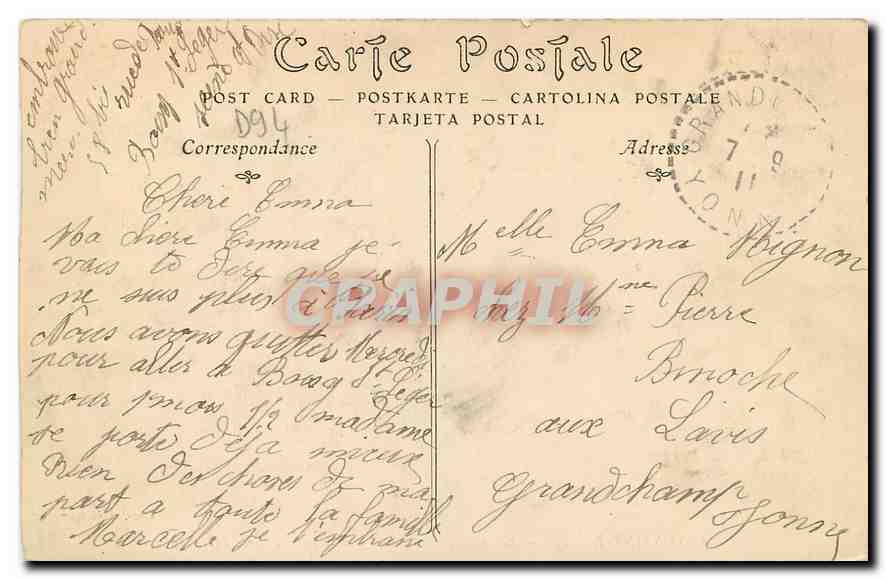 Carte Postale
POST CARD — POSTKARTE — CARTOLINA POSTALE
TARJETA POSTAL
D94
Correspondance
Chere Emma
Ma chere Emma je
vais te dire que je
ne suis plus a Paris
Nous avons quitter Mercredi
pour aller a Boissy St Leger
pour 1 mois 1/2 madame
se porte deja mieux
Rien des choses de ma
part a toute la famille
Marcelle je t'embrasse
Adresse
Melle Emma Mignon
chez Mme Pierre
Binoche
aux Lavis
Grandchamp
Yonne
GRANDC
7 9
11
YONN
CPAPHIL
58 bis
Boissy St Leger